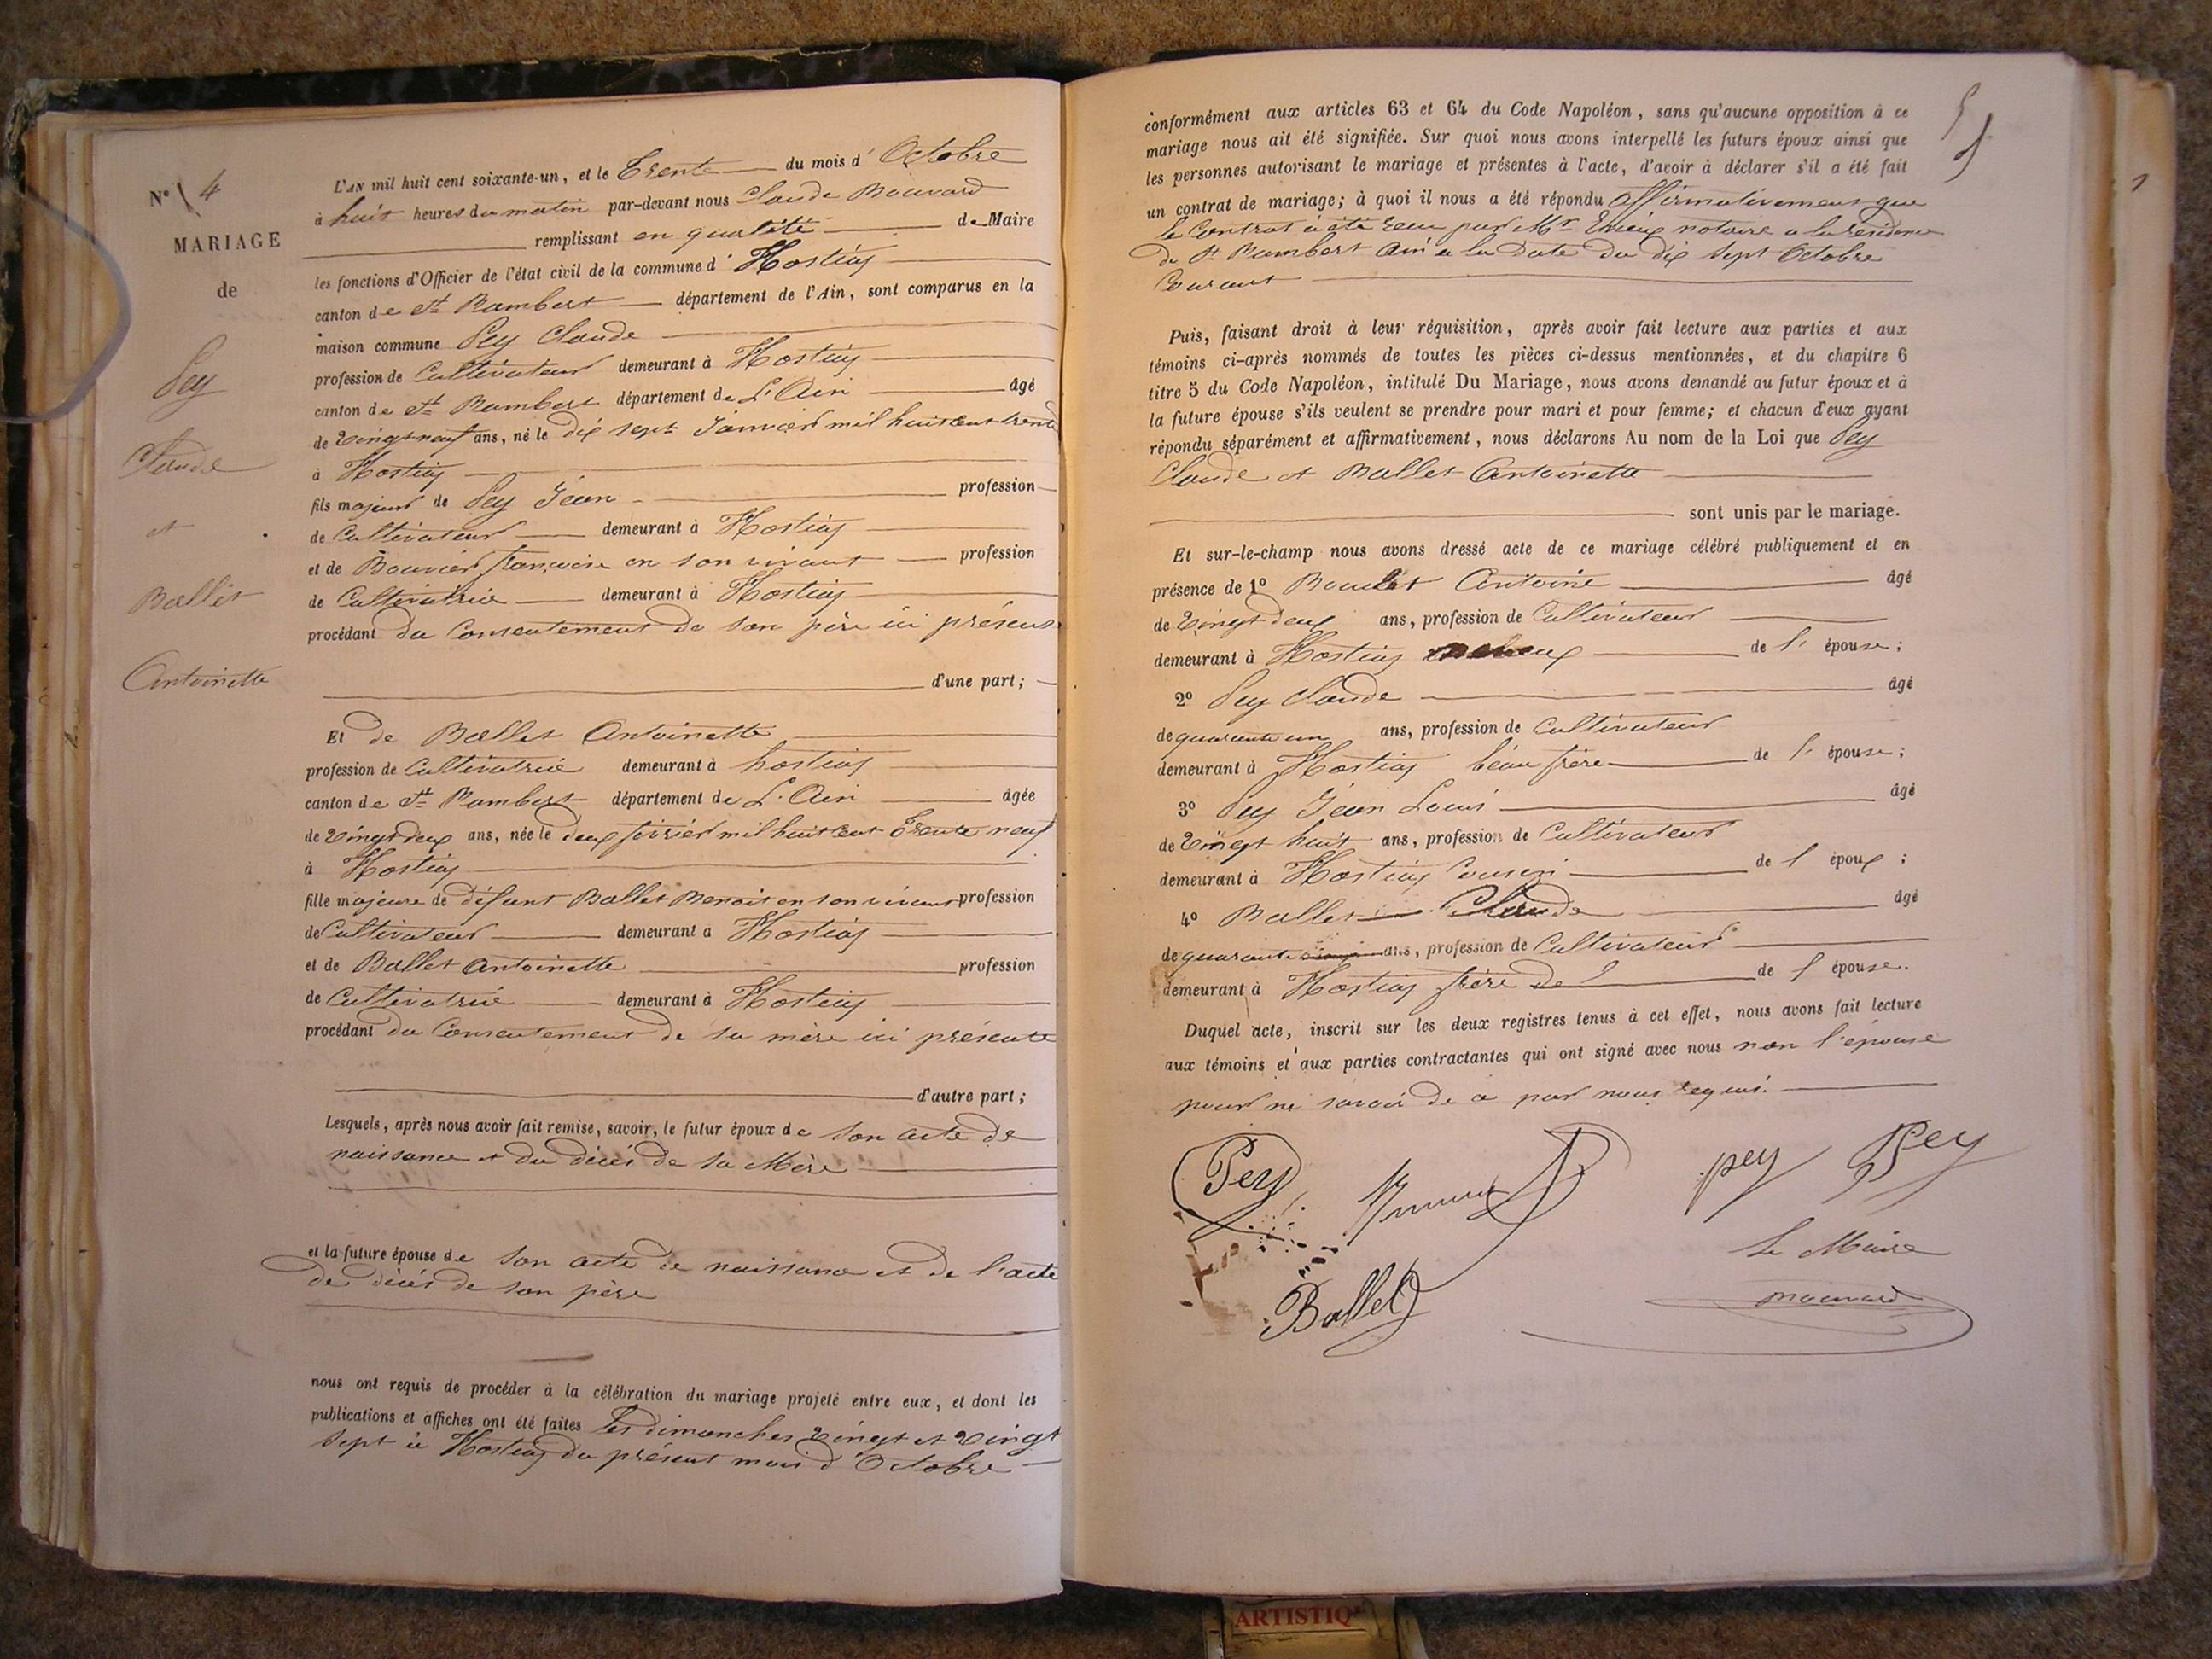 N° 4
MARIAGE
de
Pey
Claude
et
Ballet
Antoinette
L'AN mil huit cent soixante-un, et le Trente du mois d' Octobre
à huit heures du matin par-devant nous Claude Bouvard
remplissant en qualité de Maire
les fonctions d'Officier de l'état civil de la commune d' Hostiaz
canton de St Rambert département de l'Ain, sont comparus en la
maison commune Pey Claude
profession de Cultivateur demeurant à Hostiaz
canton de St Rambert département de L'Ain âgé
de vingt neuf ans, né le dix sept Janvier mil huit cent trente
à Hostiaz
fils majeur de Pey Jean profession
de Cultivateur demeurant à Hostiaz
et de Bouvier françoise en son vivant profession
de Cultivatrice demeurant à Hostiaz
procédant du Consentement de son père ici présent
d'une part;
Et de Ballet Antoinette
profession de Cultivatrice demeurant à hostiaz
canton de St Rambert département de L'Ain âgée
de vingt deux ans, née le deux février mil huit cent trente neuf
à Hostiaz
fille majeure de défunt Ballet Benoit en son vivant profession
de Cultivateur demeurant à Hostiaz
et de Ballet Antoinette profession
de Cultivatrice demeurant à Hostiaz
procédant du Consentement de sa mère ici présente
d'autre part;
Lesquels, après nous avoir fait remise, savoir, le futur époux de son acte de
naissance et du décès de sa Mère
et la future épouse de son acte de naissance et de l'acte
de décès de son père
nous ont requis de procéder à la célébration du mariage projeté entre eux, et dont les
publications et affiches ont été faites les dimanches vingt et vingt
sept à Hostiaz du présent mois d'Octobre
conformément aux articles 63 et 64 du Code Napoléon, sans qu'aucune opposition à ce
mariage nous ait été signifiée. Sur quoi nous avons interpellé les futurs époux ainsi que
les personnes autorisant le mariage et présentes à l'acte, d'avoir à déclarer s'il a été fait
un contrat de mariage; à quoi il nous a été répondu affirmativement que
le Contrat à été reçu par Mr notaire a la résidence
de St Rambert Ain a la date du dix sept Octobre
Courant
Puis, faisant droit à leur réquisition, après avoir fait lecture aux parties et aux
témoins ci-après nommés de toutes les pièces ci-dessus mentionnées, et du chapitre 6
titre 5 du Code Napoléon, intitulé Du Mariage, nous avons demandé au futur époux et à
la future épouse s'ils veulent se prendre pour mari et pour femme; et chacun d'eux ayant
répondu séparément et affirmativement, nous déclarons Au nom de la Loi que Pey
Claude et Ballet Antoinette
sont unis par le mariage.
Et sur-le-champ nous avons dressé acte de ce mariage célébré publiquement et en
présence de 1° Antoine âgé
de vingt deux ans, profession de Cultivateur
demeurant à Hostiaz de l' épouse;
2° Pey Claude âgé
de quarante un ans, profession de Cultivateur
demeurant à Hostiaz beau frère de l' épouse;
3° Pey Jean Louis âgé
de vingt huit ans, profession de Cultivateur
demeurant à Hostiaz Cousin de l époux;
4° Ballet Claude âgé
de quarante ans, profession de Cultivateur
demeurant à Hostiaz frère de l de l épouse.
Duquel acte, inscrit sur les deux registres tenus à cet effet, nous avons fait lecture
aux témoins et aux parties contractantes qui ont signé avec nous non l'épouse
pour ne savoir de a par nous requis.
Pey
pey
Pey
Le Maire
Bouvard
Ballet
ARTISTIQ